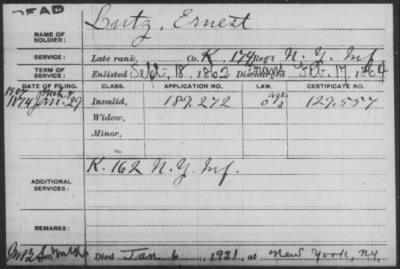 DEAD
NAME OF SOLDIER: Lutz, Ernest
SERVICE: Late rank, Co. K, 174 Reg't N. Y. Inf
TERM OF SERVICE: Enlisted Sept. 18, 1862 Discharged Feb. 17, 1864
DATE OF FILING. CLASS. APPLICATION NO. LAW. CERTIFICATE NO.
1907
1874 Jan. 29 Invalid, 189,272 129,557
Widow,
Minor,
ADDITIONAL SERVICES: K. 162 N. Y. Inf.
REMARKS:
Died Jan. 6, 1931, at New York, N.Y.